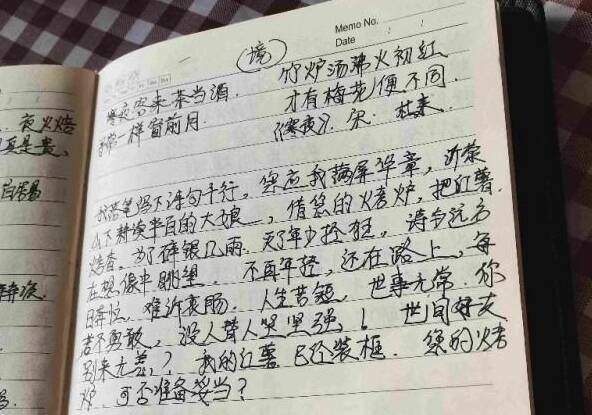 Memo No.
Date
(境)
寒夜客来茶当酒. 竹炉汤沸火初红
寻常一样窗前月. 才有梅花便不同.
《寒夜》. 宋. 杜耒.
我落笔写下诗句千行, 你应我满屏华章, 沂蒙
山下耕读半百的大娘, 借您的烤炉, 把红薯
烤香, 为了碎银几两. 灭了年少轻狂, 诗和远方
在想像中眺望. 不再年轻, 还在路上, 每
日奔忙, 难诉衷肠. 人生苦短, 世事无常. 你
若不勇敢, 没人替人哭坚强! 世间好友
别来无恙? 我的红薯已经装框. 您的烤
炉, 可否准备妥当?
夜火焙
白居易